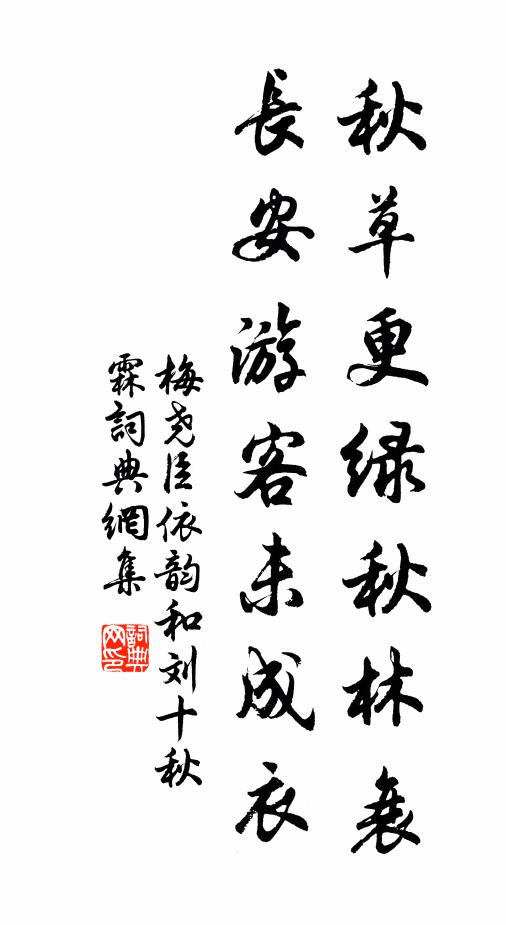 秋草更绿秋林衰
長安游客未成衣
梅尧臣依韵和刘十秋
霖詞典網集
詞典网印